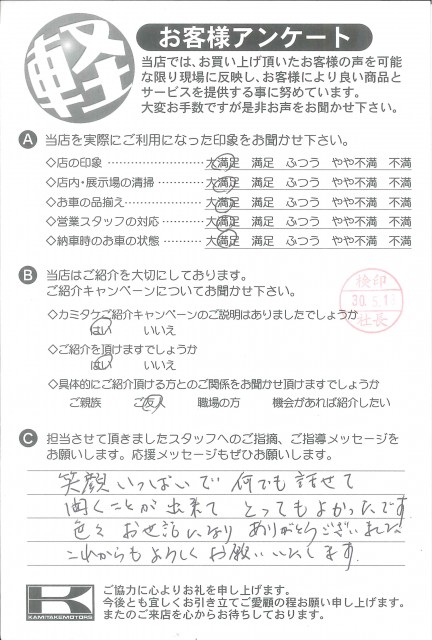 軽
お客様アンケート
当店では、お買い上げ頂いたお客様の声を可能
な限り現場に反映し、お客様により良い商品と
サービスを提供する事に努めています。
大変お手数ですが是非お声をお聞かせ下さい。
A 当店を実際にご利用になった印象をお聞かせ下さい。
◇店の印象 ………………… 大満足 満足 ふつう やや不満 不満
◇店内・展示場の清掃 ……… 大満足 満足 ふつう やや不満 不満
◇お車の品揃え……………… 大満足 満足 ふつう やや不満 不満
◇営業スタッフの対応 ……… 大満足 満足 ふつう やや不満 不満
◇納車時のお車の状態 ……… 大満足 満足 ふつう やや不満 不満
B 当店はご紹介を大切にしてあります。
ご紹介キャンペーンについてお聞かせ下さい。
検印
30.5.1
社長
◇カミタケご紹介キャンペーンのご説明はありましたでしょうか
はい いいえ
◇ご紹介を頂けますでしょうか
はい いいえ
◇具体的にご紹介頂ける方とのご関係をお聞かせ頂けますでしょうか
ご親族 ご友人 職場の方 機会があれば紹介したい
C 担当させて頂きましたスタッフへのご指摘、ご指導メッセージを
お願いします。応援メッセージもぜひお願いします。
笑顔いっぱいで 何でも話せて
聞くことが出来て とってもよかったです
色々 お世話になり ありがとうございました
これからもよろしくお願いいたします
K
KAMITAKEMOTORS
ご協力に心よりお礼を申し上げます。
今後とも宜しくお引き立てご愛顧の程お願い申し上げます。
またのご来店を心からお待ちしております。